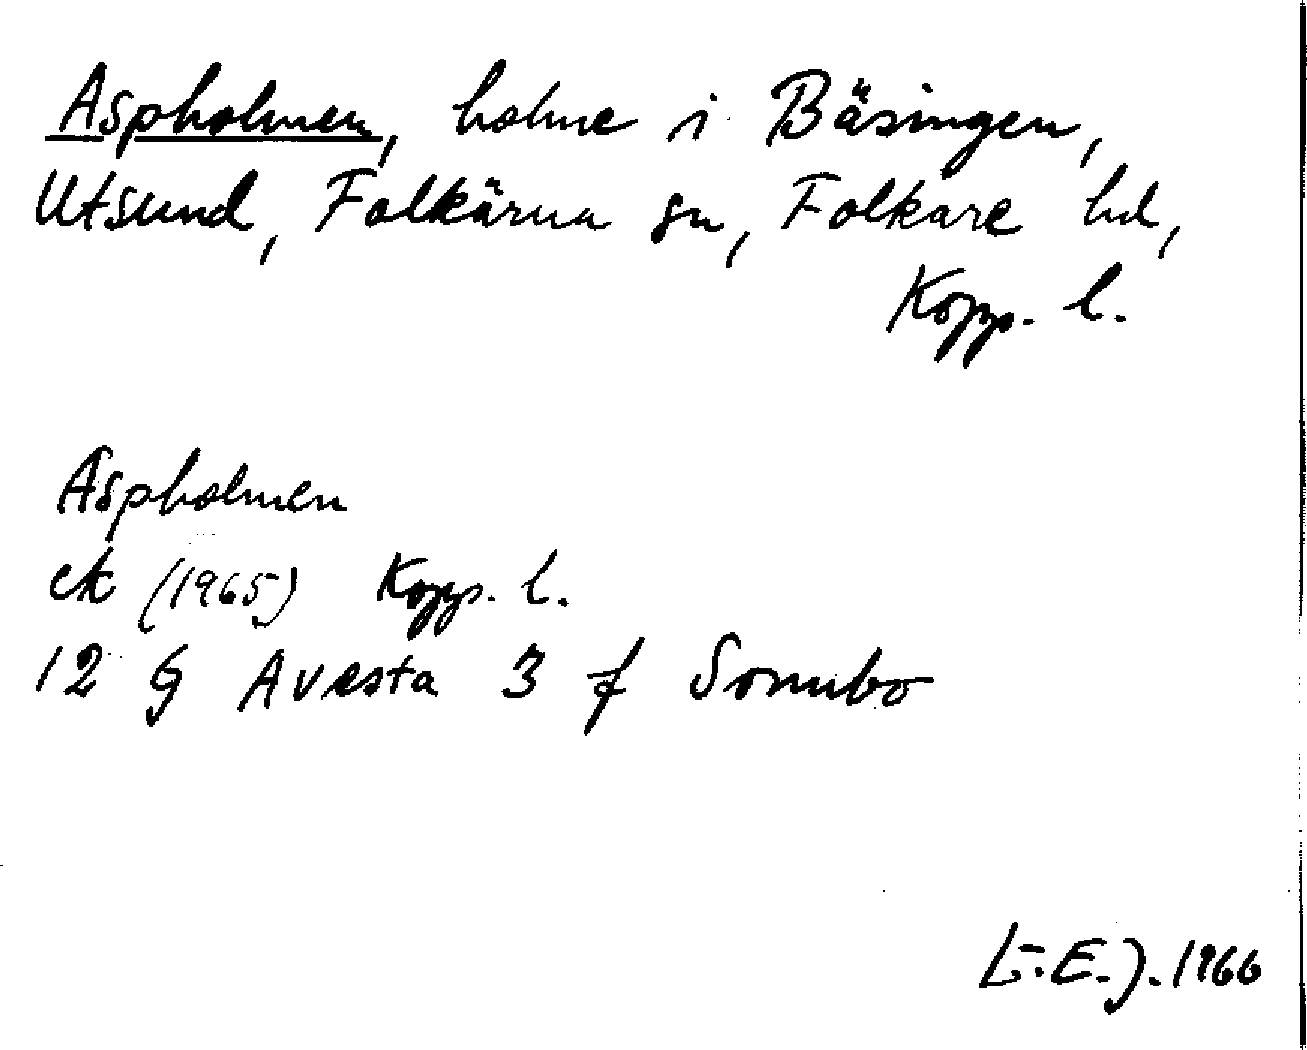 Aspholmen, holme i Bäsingen,
Utsund, Folkärna sn, Folkare hd,
Kopp. l.
Aspholmen
ek (1965) Kopp. l.
12 G Avesta 3 f Sonnbo
L.-E. J. 1966